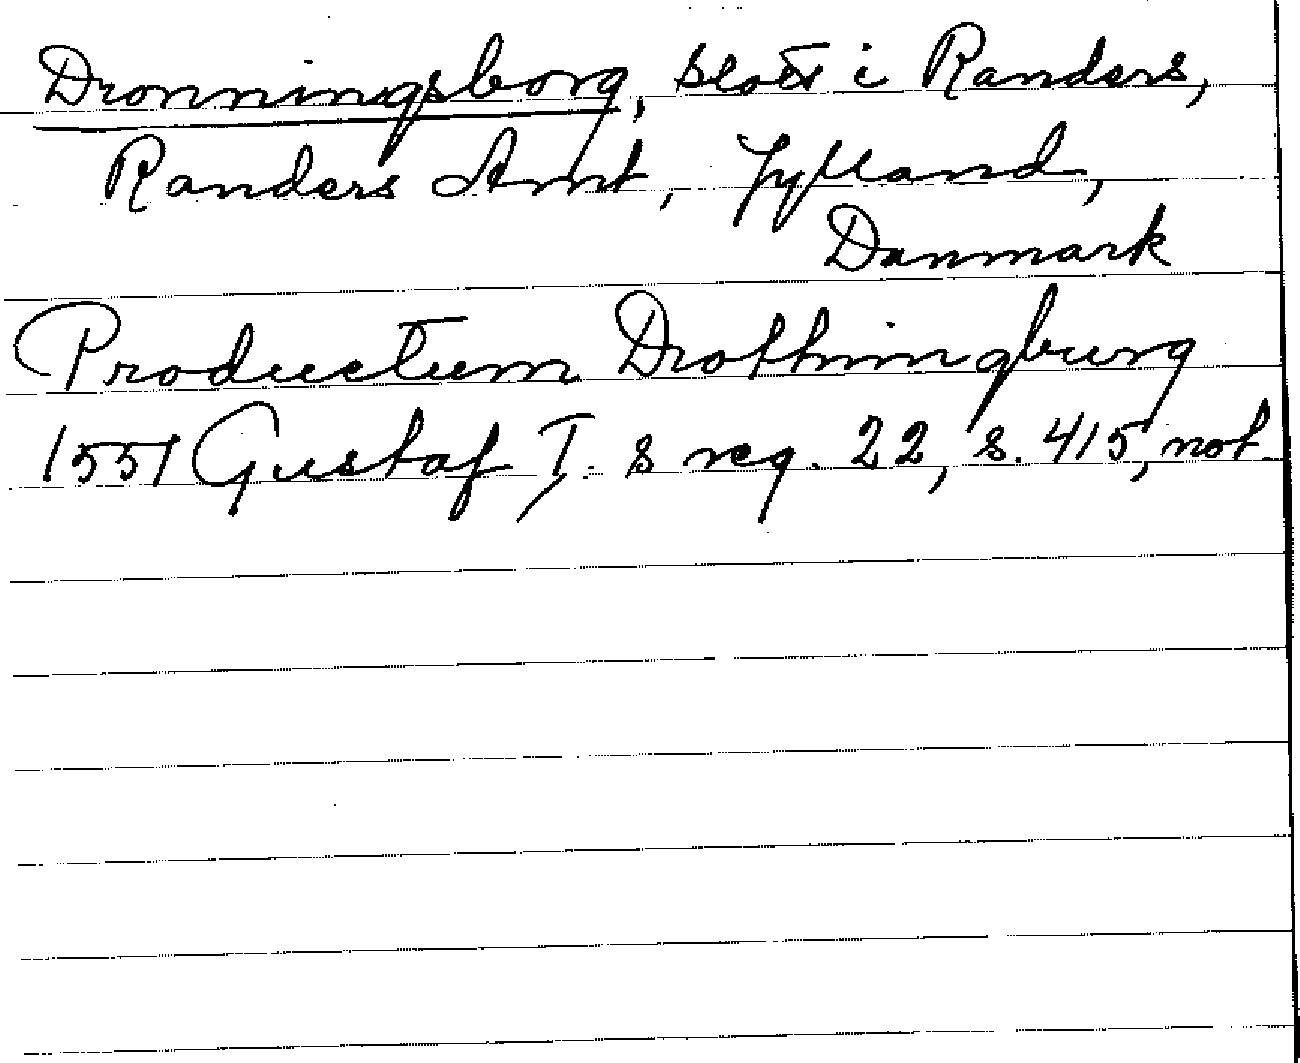 Dronningsborg, slott i Randers,
Randers Amt, Jylland,
Danmark
Productum Drothningburg
1551 Gustaf I. s reg. 22, s. 415, not.